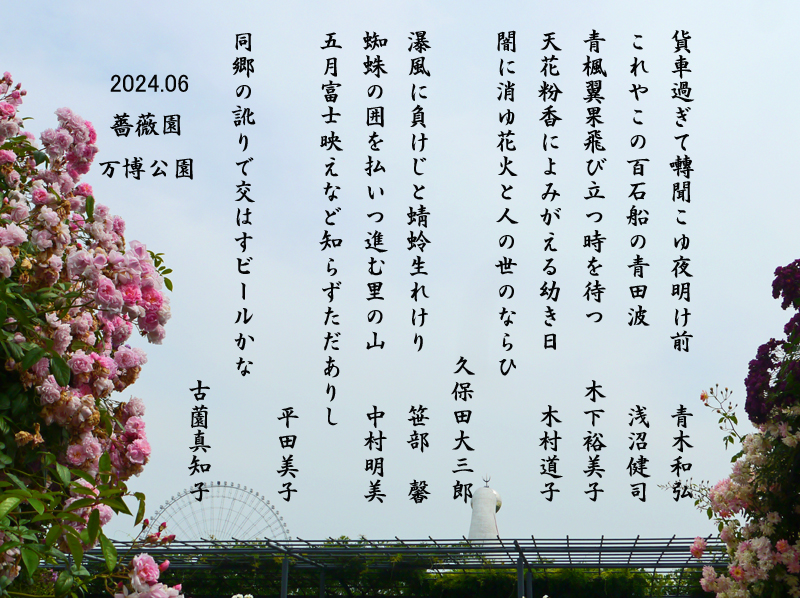 貨車過ぎて囀聞こゆ夜明け前
青木和弘
これやこの百石船の青田波
浅沼健司
青楓翼果飛び立つ時を待つ
木下裕美子
天花粉香によみがえる幼き日
木村道子
闇に消ゆ花火と人の世のならひ
久保田大三郎
瀑風に負けじと蜻蛉生れけり
笹部 馨
蜘蛛の囲を払いつ進む里の山
中村明美
五月富士映えなど知らずただありし
平田美子
同郷の訛りで交はすビールかな
古薗真知子
2024.06
薔薇園
万博公園